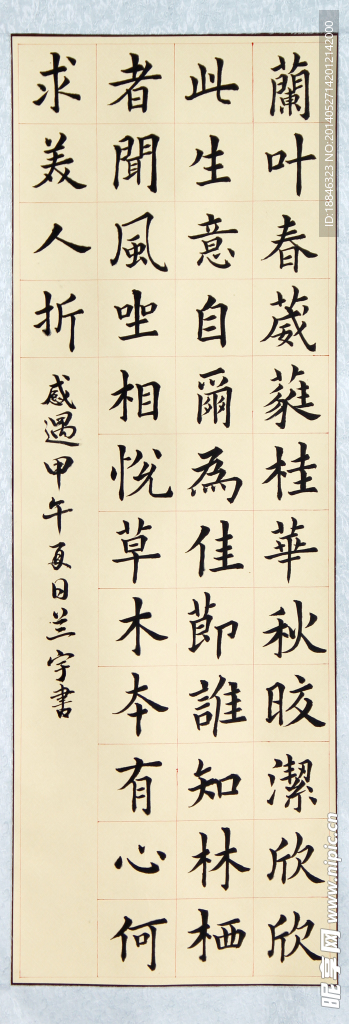 蘭叶春葳蕤桂華秋皎潔欣欣
此生意自爾為佳節誰知林栖
者聞風坐相悅草木本有心何
求美人折
感遇甲午夏日兰宇書
ID:18846323 NO:20140527142012142000
昵享网 www.nipic.cn